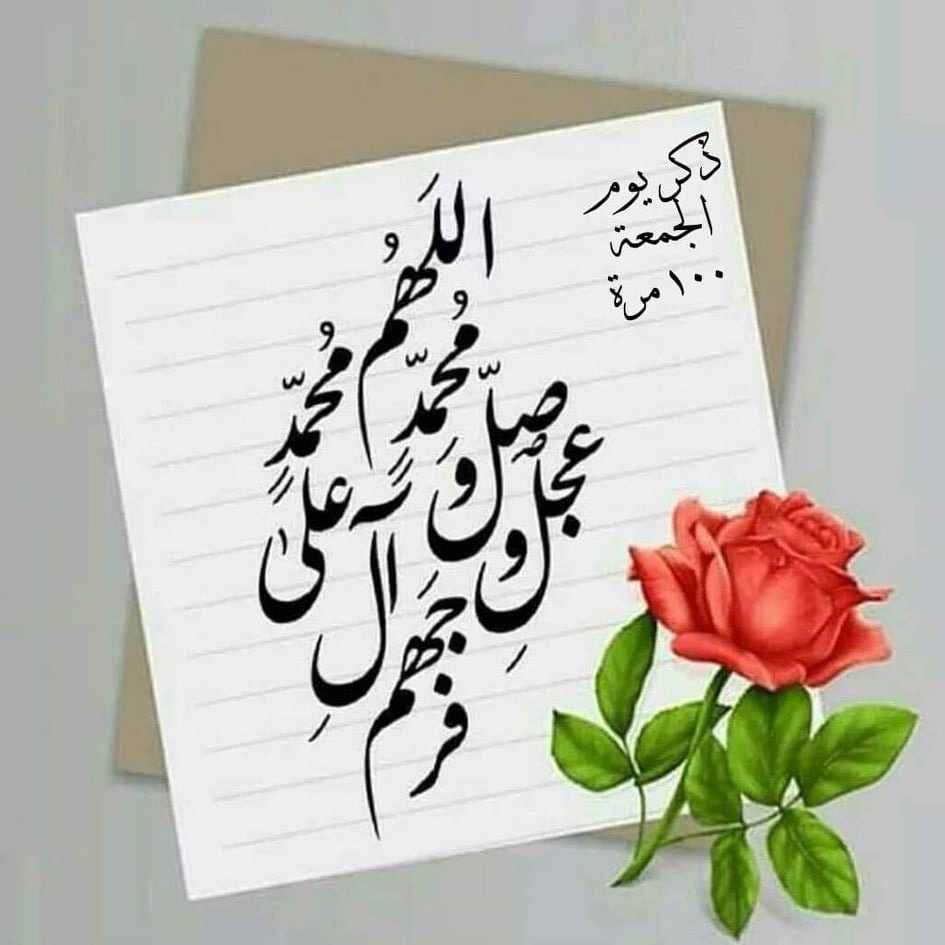 ذكر يوم
الجمعة
١٠٠ مرة
اللَهُم صلّ علىٰ مُحمّدٍ وآلِ مُحمّدٍ وعجلْ فرجَهم